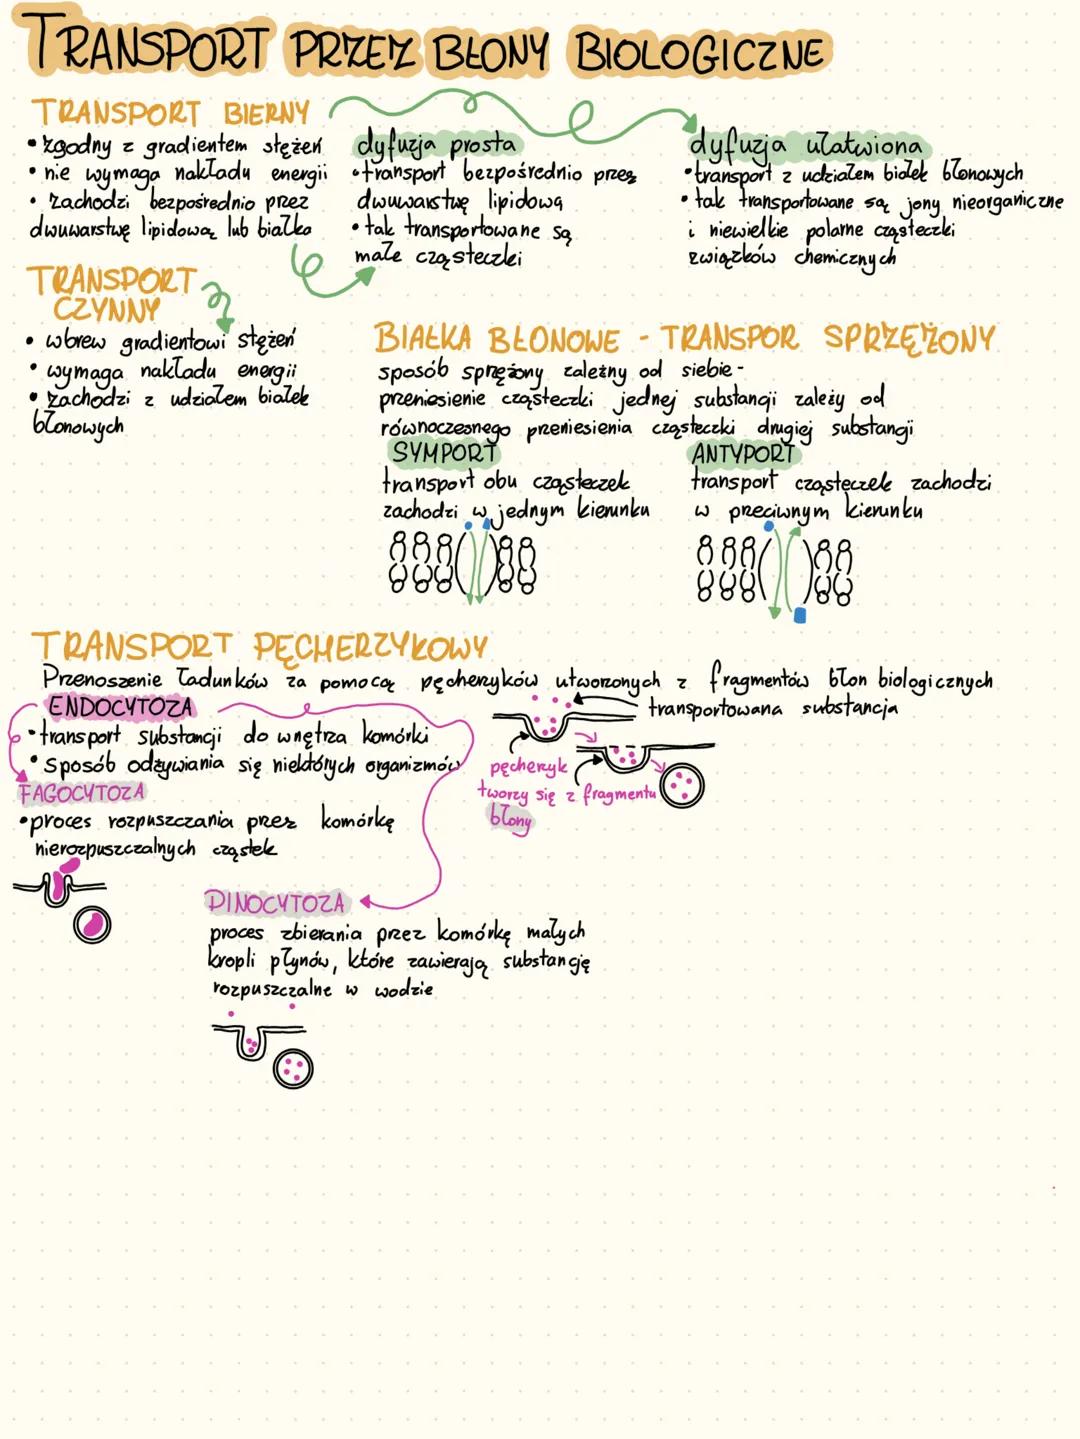 TRANSPORT PRZEZ BŁONY BIOLOGICZNE
TRANSPORT BIERNY
• zgodny z gradientem stężeń
• nie wymaga nakładu energii
• zachodzi bezpośrednio przez
dwuwarstwę lipidową lub białka
dyfuzja prosta
• transport bezpośrednio przez
dwuwarstwę lipidową
• tak transportowane są
małe cząsteczki
dyfuzja ułatwiona
• transport z udziałem białek błonowych
• tak transportowane są jony nieorganiczne
i niewielkie polarne cząsteczki
związków chemicznych
TRANSPORT
CZYNNY
• wbrew gradientowi stężeń
• wymaga nakładu energii
• zachodzi z udziałem białek
błonowych
BIAŁKA BŁONOWE - TRANSPOR SPRZĘŻONY
sposób sprężony zależny od siebie -
przeniesienie cząsteczki jednej substancji zależy od
równoczesnego przeniesienia cząsteczki drugiej substancji
SYMPORT
transport obu cząsteczek
zachodzi w jednym kierunku
ANTYPORT
transport cząsteczek zachodzi
w preciwnym kierunku
TRANSPORT PĘCHERZYKOWY
Przenoszenie ładunków za pomocą pęcherzyków utworzonych z fragmentów błon biologicznych
ENDOCYTOZA
• transport substancji do wnętrza komórki
• sposób odżywiania się niektórych organizmów
transportowana substancja
pęcherzyk
tworzy się z fragmentu
błony
FAGOCYTOZA
• proces rozpuszczania przez komórkę
nierozpuszczalnych cząstek
PINOCYTOZA
proces zbierania przez komórkę małych
kropli płynów, które zawierają substancję
rozpuszczalne w wodzie